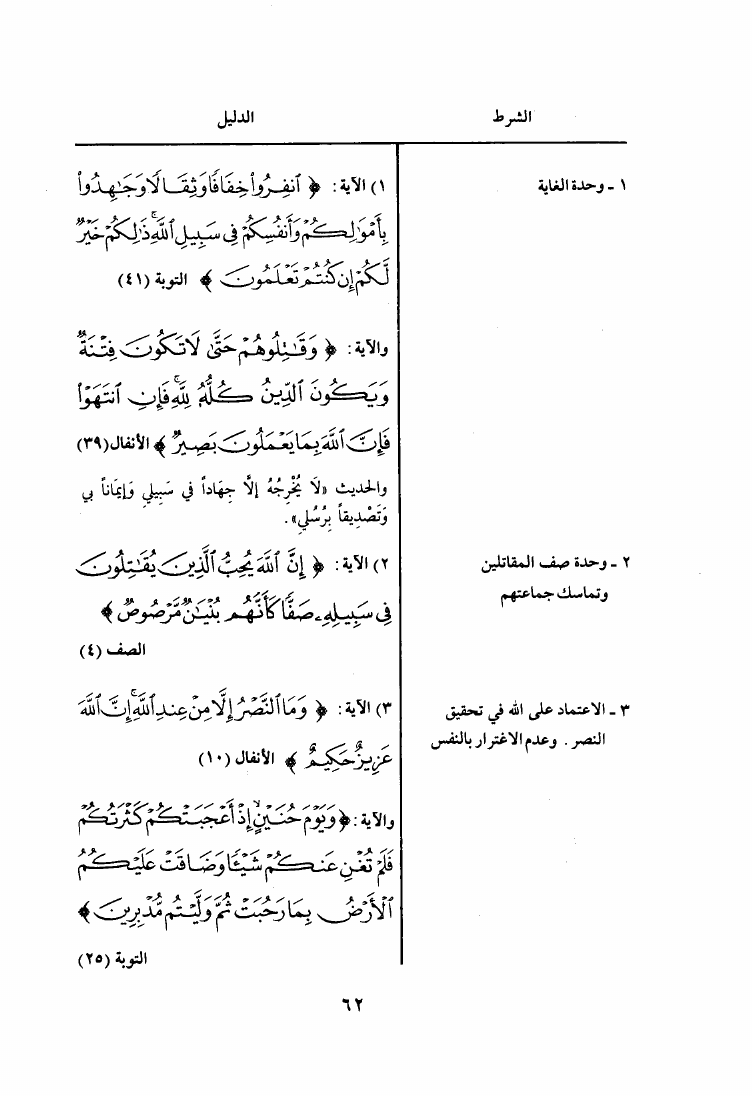 الشرط
الدليل
١ - وحدة الغاية
١) الآية: ﴿ ٱنفِرُوا۟ خِفَافًا وَثِقَالًا وَجَٰهِدُوا۟
بِأَمْوَٰلِكُمْ وَأَنفُسِكُمْ فِى سَبِيلِ ٱللَّهِ ۚ ذَٰلِكُمْ خَيْرٌ
لَّكُمْ إِن كُنتُمْ تَعْلَمُونَ ﴾ التوبة (٤١)
والآية: ﴿ وَقَٰتِلُوهُمْ حَتَّىٰ لَا تَكُونَ فِتْنَةٌ
وَيَكُونَ ٱلدِّينُ كُلُّهُۥ لِلَّهِ ۚ فَإِنِ ٱنتَهَوْا۟
فَإِنَّ ٱللَّهَ بِمَا يَعْمَلُونَ بَصِيرٌ ﴾ الأنفال (٣٩)
والحديث «لَا يُخْرِجُهُ إِلَّا جِهَاداً فِي سَبِيلِي وَإِيمَاناً بِي
وَتَصْدِيقاً بِرُسُلِي».
٢ - وحدة صف المقاتلين
وتماسك جماعتهم
٢) الآية: ﴿ إِنَّ ٱللَّهَ يُحِبُّ ٱلَّذِينَ يُقَٰتِلُونَ
فِى سَبِيلِهِۦ صَفًّا كَأَنَّهُم بُنْيَٰنٌ مَّرْصُوصٌ ﴾
الصف (٤)
٣ - الاعتماد على الله في تحقيق
النصر . وعدم الاغترار بالنفس
٣) الآية: ﴿ وَمَا ٱلنَّصْرُ إِلَّا مِنْ عِندِ ٱللَّهِ ۚ إِنَّ ٱللَّهَ
عَزِيزٌ حَكِيمٌ ﴾ الأنفال (١٠)
والآية: ﴿ وَيَوْمَ حُنَيْنٍ ۙ إِذْ أَعْجَبَتْكُمْ كَثْرَتُكُمْ
فَلَمْ تُغْنِ عَنكُمْ شَيْـًٔا وَضَاقَتْ عَلَيْكُمُ
ٱلْأَرْضُ بِمَا رَحُبَتْ ثُمَّ وَلَّيْتُم مُّدْبِرِينَ ﴾
التوبة (٢٥)
٦٢